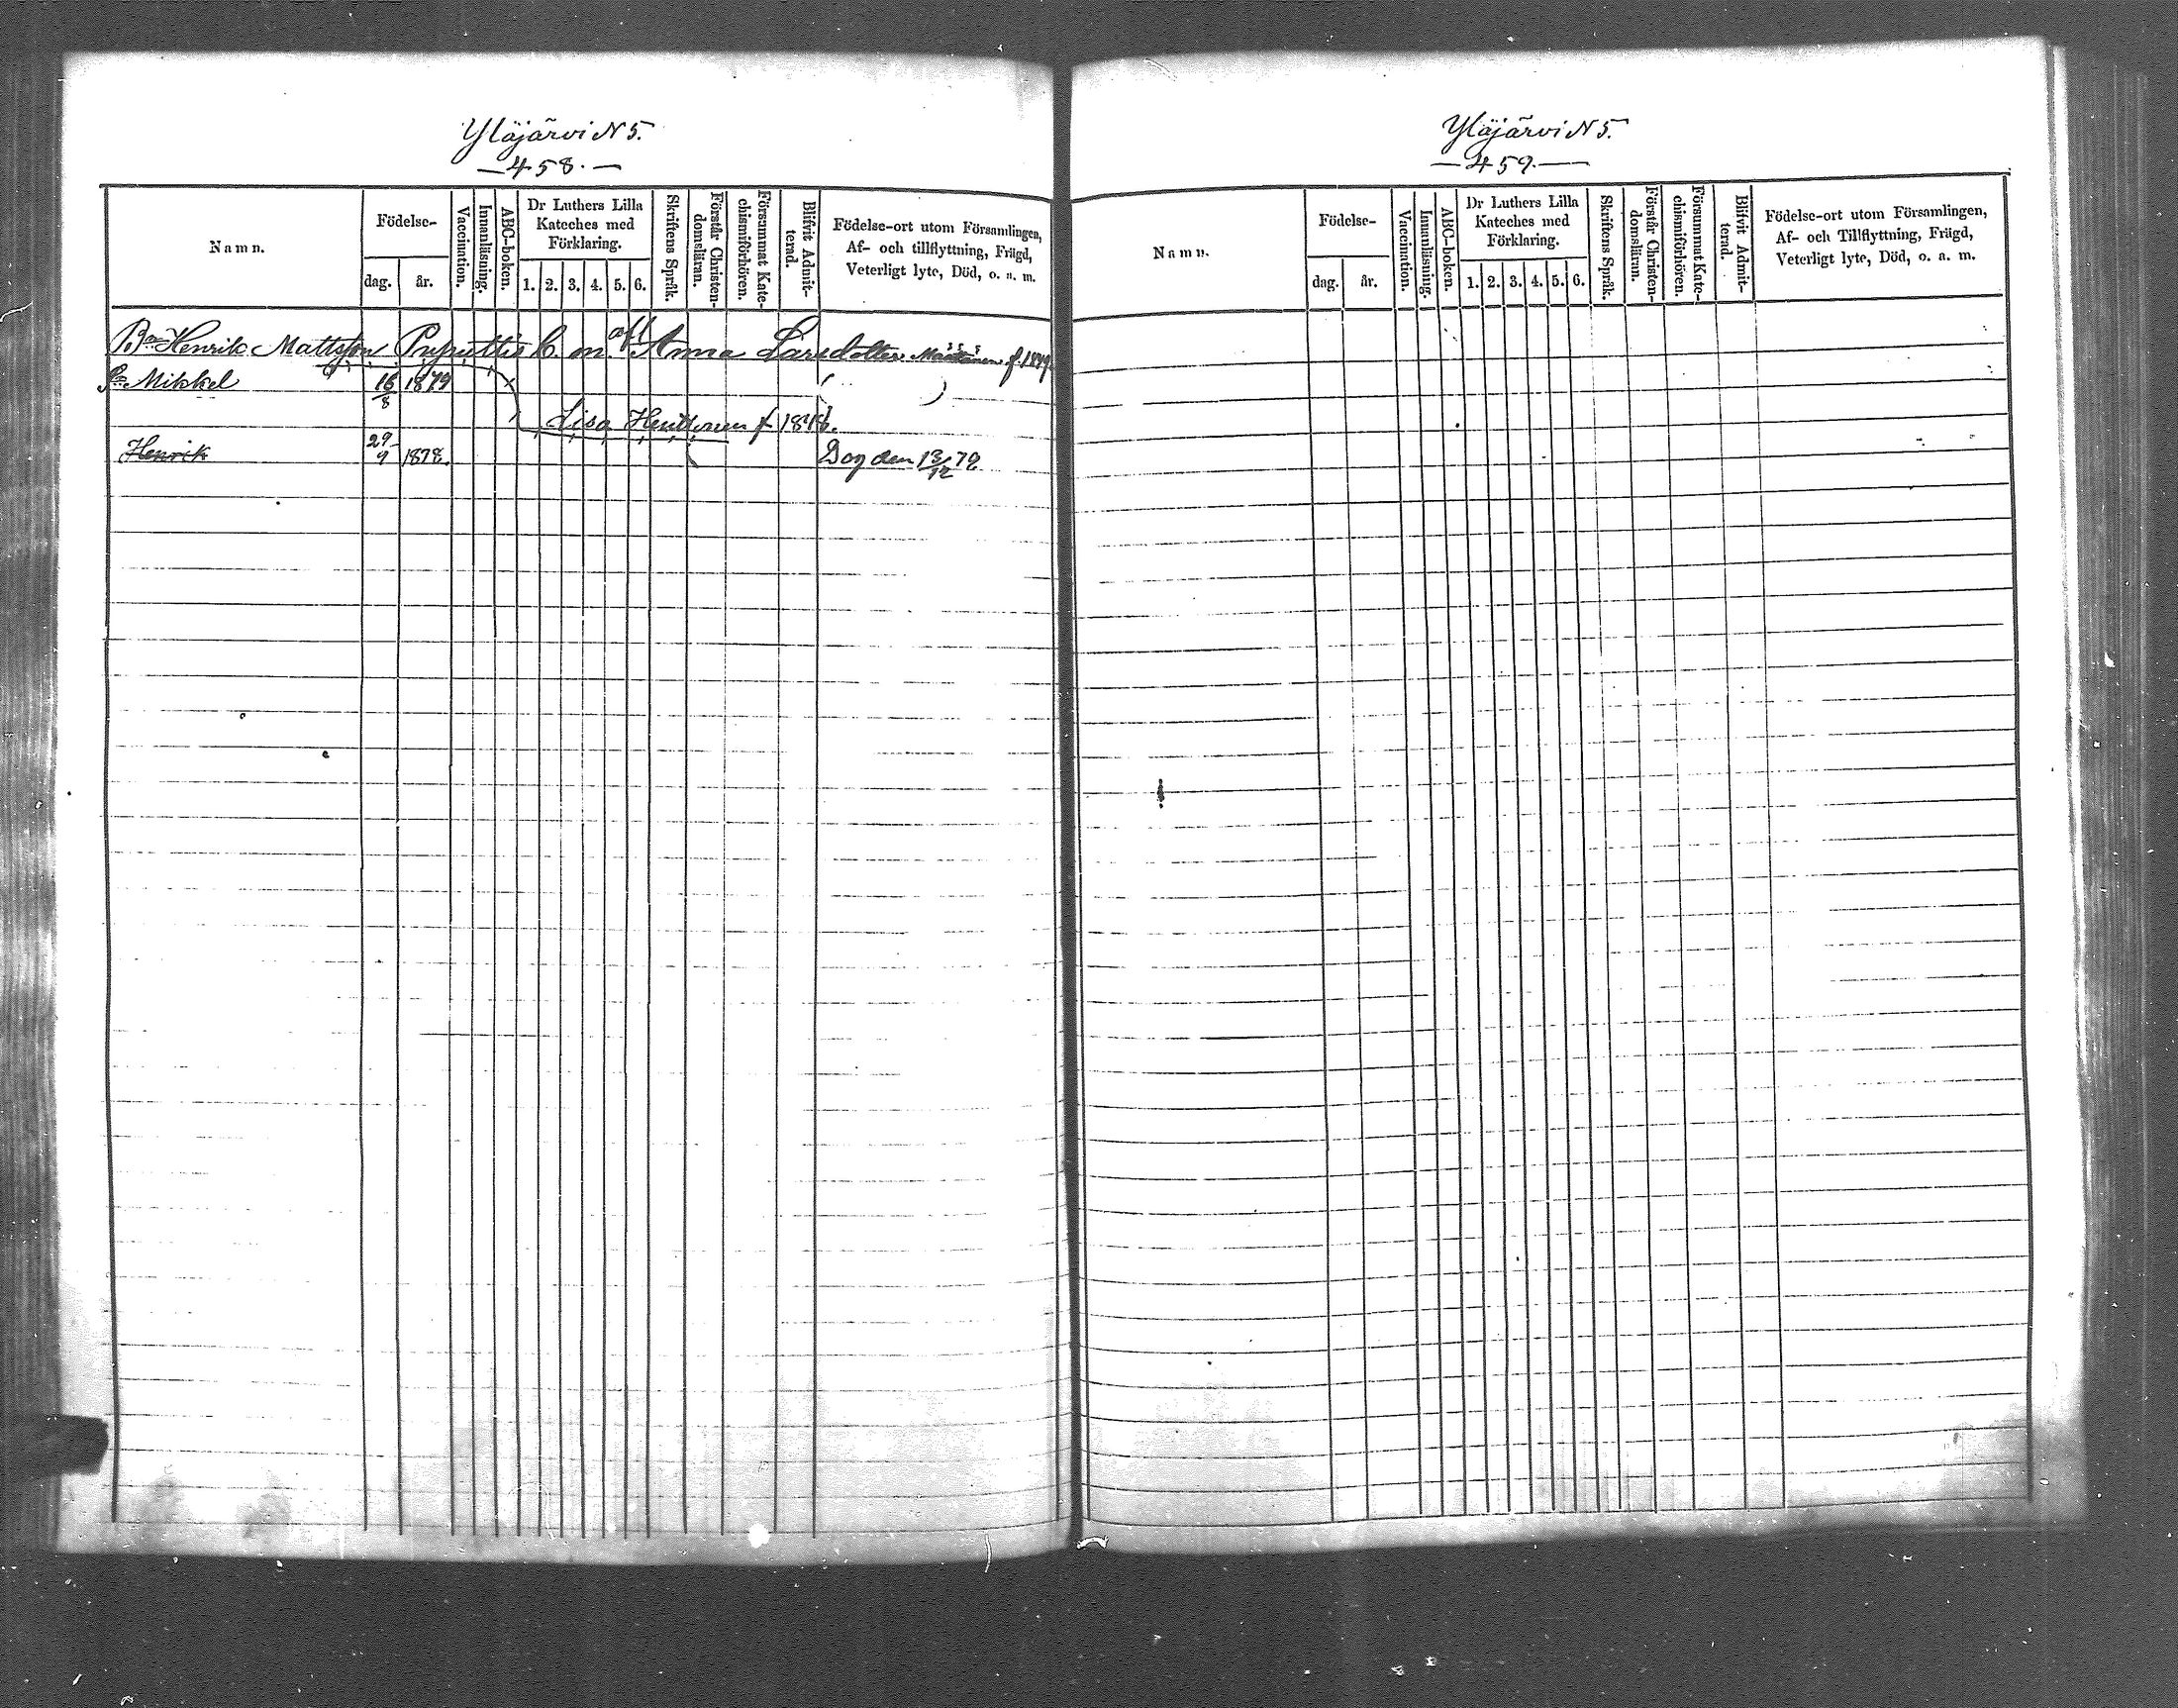 Yläjärvi N 5.
— 458. —
Namn.
Födelse-
dag.
år.
Vaccination.
Innanläsning.
ABC-boken.
Dr Luthers Lilla
Kateches med
Förklaring.
1. 2. 3. 4. 5. 6.
Skriftens Språk.
Förstår Christen-
domsläran.
Försummat Kate-
chismiförhören.
Blifvit Admit-
terad.
Födelse-ort utom Församlingen,
Af- och tillflyttning, Frägd,
Veterligt lyte, Död, o. a. m.
Henrik Mattsson m. Anna Larsdotter
Mikkel 16/8 1879
Lisa f
Henrik 29/9 1878. Dog den 13/12 79
Yläjärvi N 5.
— 459. —
Namn.
Födelse-
dag.
år.
Vaccination.
Innanläsning.
ABC-boken.
Dr Luthers Lilla
Kateches med
Förklaring.
1. 2. 3. 4. 5. 6.
Skriftens Språk.
Förstår Christen-
domsläran.
Försummat Kate-
chismiförhören.
Blifvit Admit-
terad.
Födelse-ort utom Församlingen,
Af- och Tillflyttning, Frägd,
Veterligt lyte, Död, o. a. m.